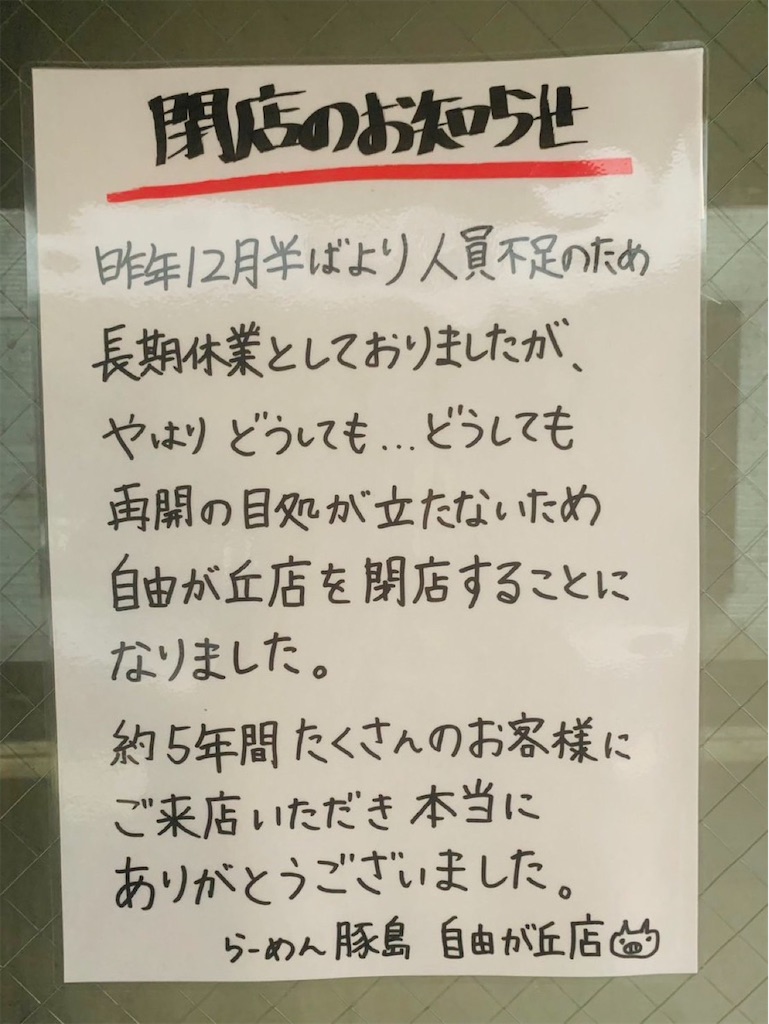 閉店のお知らせ
昨年12月半ばより人員不足のため
長期休業としておりましたが、
やはりどうしても...どうしても
再開の目処が立たないため
自由が丘店を閉店することに
なりました。
約5年間たくさんのお客様に
ご来店いただき本当に
ありがとうございました。
らーめん豚島 自由が丘店